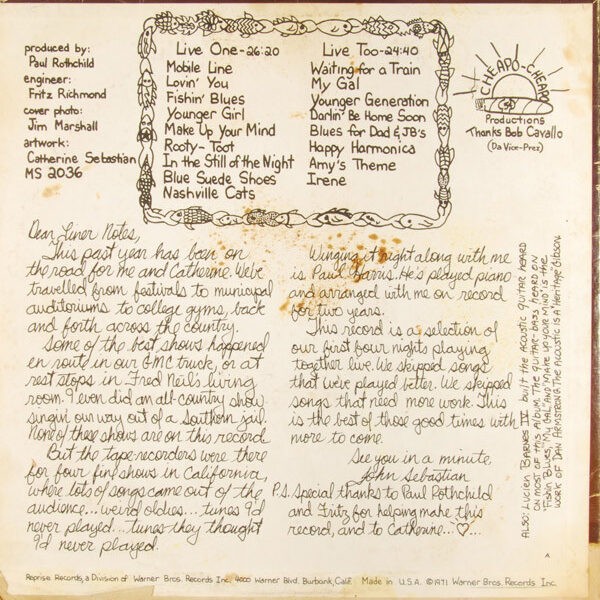 produced by:
Paul Rothchild
engineer:
Fritz Richmond
cover photo:
Jim Marshall
artwork:
Catherine Sebastian
MS 2036
Live One-26:20
Mobile Line
Lovin' You
Fishin' Blues
Younger Girl
Make Up Your Mind
Rooty-Toot
In the Still of the Night
Blue Suede Shoes
Nashville Cats
Live Too-24:40
Waiting for a Train
My Gal
Younger Generation
Darlin' Be Home Soon
Blues for Dad & JB's
Happy Harmonica
Amy's Theme
Irene
CHEAPO-CHEAPO
Productions
Thanks Bob Cavallo
(Da Vice-Prez)
Dear Liner Notes,
This past year has been on
the road for me and Catherine. We've
travelled from festivals to municipal
auditoriums to college gyms, back
and forth across the country.
Some of the best shows happened
en route in our GMC truck, or at
rest stops in Fred Neil's living
room. I even did an all-country show
singin our way out of a Southern jail.
None of these shows are on this record.
But the tape-recorders were there
for four fine shows in California,
where lots of songs came out of the
audience... weird oldies... tunes I'd
never played... tunes they thought
I'd never played.
Winging it right along with me
is Paul Harris. He's played piano
and arranged with me on record
for two years.
This record is a selection of
our first four nights playing
together live. We skipped songs
that we've played better. We skipped
songs that need more work. This
is the best of those good times with
more to come.
See you in a minute,
John Sebastian
P.S. Special thanks to Paul Rothchild
and Fritz for helping make this
record, and to Catherine...♡...
ALSO: LUCIEN BARNES IV built the ACOUSTIC GUITAR HEARD
ON MOST OF THIS ALBUM. THE GUITAR-BASS HEARD ON
"Fishin Blues," "My GAL," AND "MAKE UP YOUR MIND" IS the
WORK OF DAN ARMSTRONG. THE ACOUSTIC IS A HERITAGE GIBSON.
A
Reprise Records, a Division of Warner Bros. Records Inc. 4000 Warner Blvd. Burbank, Calif. Made in U.S.A. ©1971 Warner Bros. Records Inc.